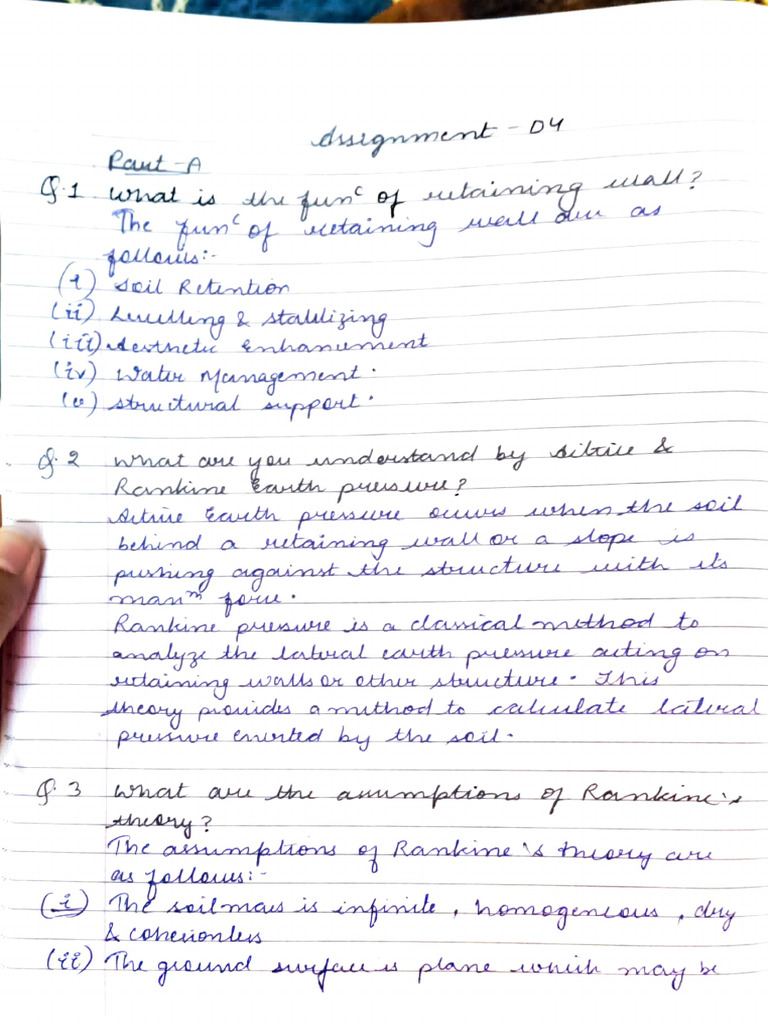 Assignment - 04
Part - A
Q.1 What is the funᶜ of retaining wall?
The funᶜ of retaining wall are as
follows:-
(i) Soil Retention
(ii) Levelling & stabilizing
(iii) Aesthetic Enhancement
(iv) Water Management.
(v) Structural support.
Q.2 What are you understand by Active &
Rankine Earth pressure?
Active Earth pressure occurs when the soil
behind a retaining wall or a slope is
pushing against the structure with its
maxᵐ force.
Rankine pressure is a classical method to
analyze the lateral earth pressure acting on
retaining walls or other structure. This
theory provides a method to calculate lateral
pressure exerted by the soil.
Q.3 What are the assumptions of Rankine's
theory?
The assumptions of Rankine's theory are
as follows:-
(i) The soil mass is infinite, homogeneous, dry
& cohesionless
(ii) The ground surface is plane which may be